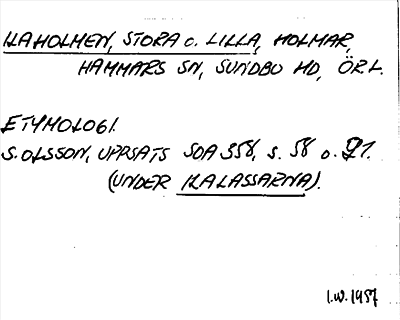 KLAHOLMEN, STORA o. LILLA, HOLMAR,
HAMMARS SN, SUNDBO HD, ÖR.L.
ETYMOLOGI.
S. OLSSON, UPPSATS SOA 358, s. 58 o. 91.
(UNDER KLALASSARNA).
I.W. 1957